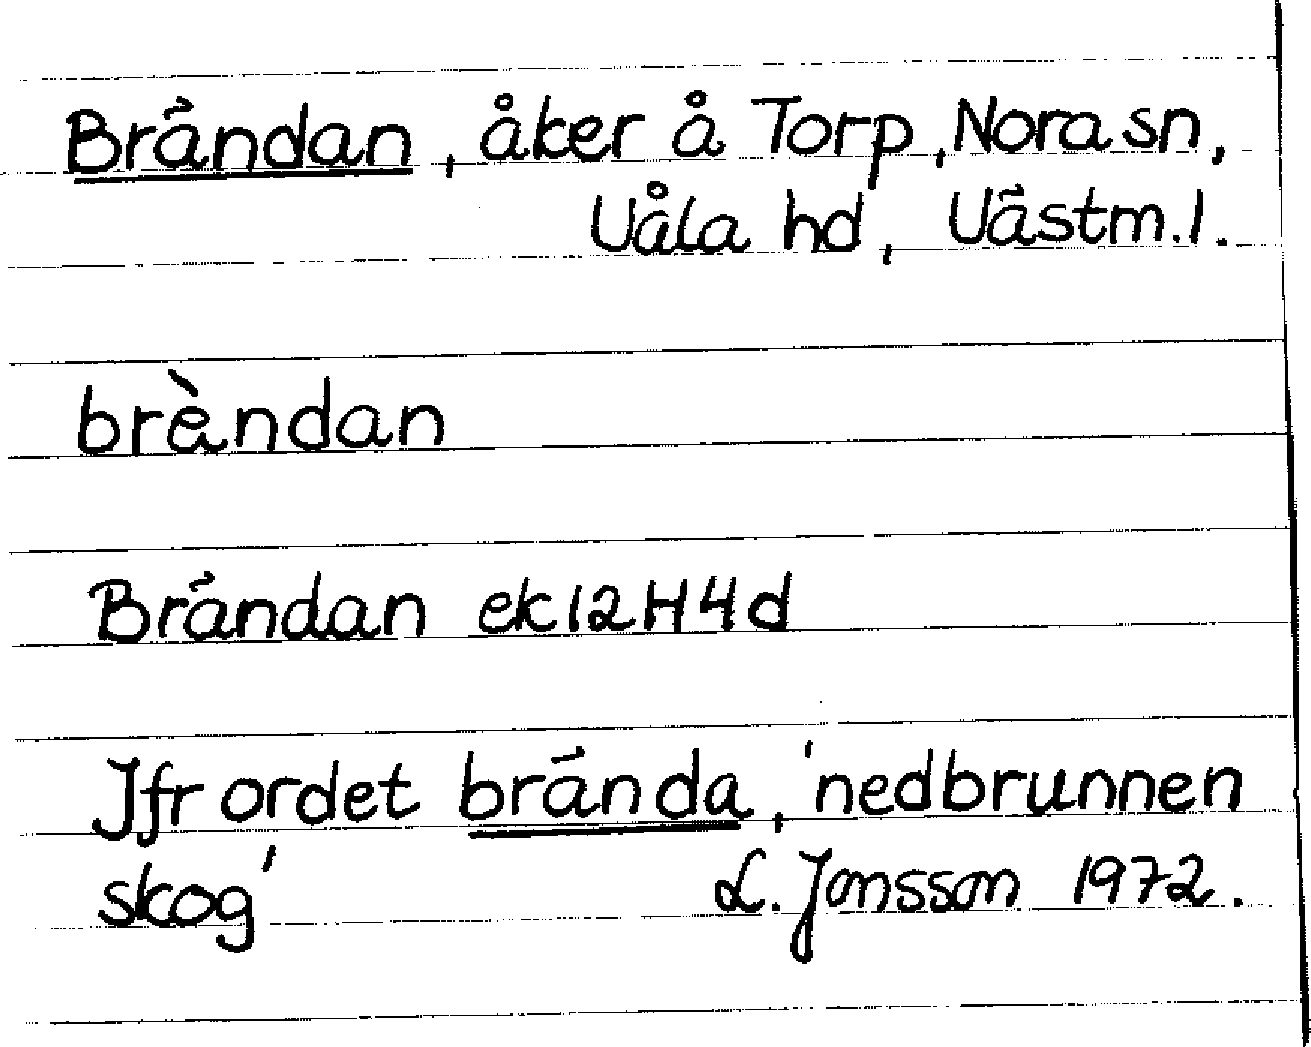 Brändan, åker å Torp, Nora sn,
Våla hd, Västm. l.
brèndan
Brändan ek 12H4d
Jfr ordet brända, 'nedbrunnen
skog'
L. Jonsson 1972.